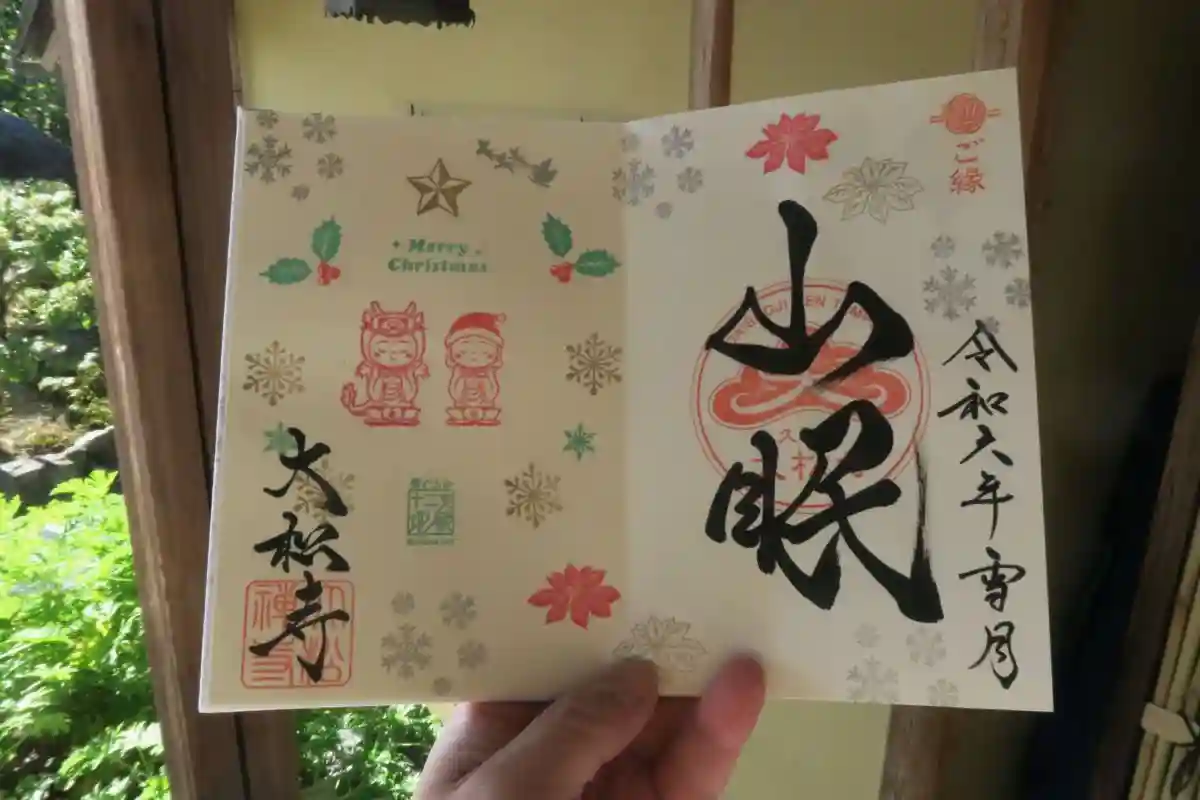 ご縁
令和六年雪月
山眠
Merry
Christmas
大松寺